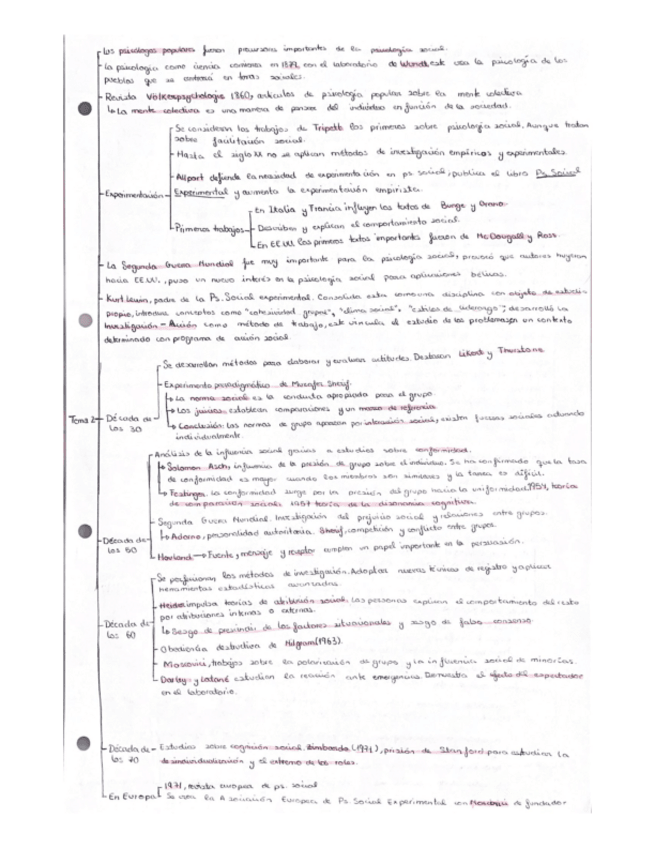 Los psicólogos populares fueron precursores importantes de la psicología social.
La psicología como ciencia comienza en 1879, con el laboratorio de Wundt, este usa la psicología de los
pueblos que se ordena en torno sociales.
Revista Völkerpsychologie 1860, artículos de psicología popular sobre la mente colectiva
La mente colectiva es una manera de pensar del individuo en función de la sociedad.
Experimentación
Se consideran los trabajos de Triplett los primeros sobre psicología social. Aunque tratan
sobre facilitación social.
Hasta el siglo XX no se aplican métodos de investigación empíricos y experimentales.
Allport defiende la necesidad de experimentación en ps. social, publica el libro Ps. Social
Experimental y aumenta la experimentación empirista.
Primeros trabajos
En Italia y Francia influyen los textos de Bunge y Orano
Describen y explican el comportamiento social.
En EE.UU. los primeros textos importantes fueron de McDougall y Ross
La Segunda Guerra Mundial fue muy importante para la psicología social, provocó que autores huyeran
hacia EE.UU., puso un nuevo interés en la psicología social para aplicaciones bélicas.
Kurt Lewin, padre de la Ps. Social experimental. Consolida esta como una disciplina con objeto de estudio
propio, introduce conceptos como "cohesividad grupal", "clima social", "estilos de liderazgo", desarrolló la
Investigación - Acción como método de trabajo, este vincula el estudio de los problemas en un contexto
determinado con programa de acción social.
Tema 2
Década de los 30
Se desarrollan métodos para elaborar y evaluar actitudes. Destacan Likert y Thurstone
Experimento paradigmático de Muzafer Sherif.
La norma social es la conducta apropiada para el grupo.
Los juicios establecen comparaciones y un marco de referencia
Conclusión: Las normas de grupo aparecen por interacción social, existen fuerzas sociales actuando
individualmente.
Década de los 50
Análisis de la influencia social gracias a estudios sobre conformidad.
Solomon Asch, influencia de la presión de grupo sobre el individuo. Se ha confirmado que la tasa
de conformidad es mayor cuando los miembros son similares y la tarea es difícil.
Festinger. La conformidad surge por la presión del grupo hacia la uniformidad. 1954, teoría
de comparación social. 1957 teoría de la disonancia cognitiva.
Segunda Guerra Mundial. Investigación del prejuicio social y relaciones entre grupos.
Adorno, personalidad autoritaria. Sherif, competición y conflicto entre grupos.
Hovland Fuente, mensaje y receptor cumplen un papel importante en la persuasión.
Década de los 60
Se perfeccionan los métodos de investigación. Adoptan nuevas técnicas de registro y aplican
herramientas estadísticas avanzadas.
Heider impulsa teorías de atribución social. Las personas explican el comportamiento del resto
por atribuciones internas o externas.
Sesgo de prescindir de los factores situacionales y sesgo de falso consenso
Obediencia destructiva de Milgram (1963).
Moscovici, trabajos sobre la polarización de grupos y la influencia social de minorías.
Darley y Latané estudian la reacción ante emergencias. Demuestra el efecto del espectador
en el laboratorio.
Década de los 70
Estudios sobre cognición social. Zimbardo (1971), prisión de Stanford para estudiar la
desindividualización y el extremo de los roles.
En Europa
1971, revista europea de ps. social
Se crea la Asociación Europea de Ps Social Experimental con Moscovici de fundador